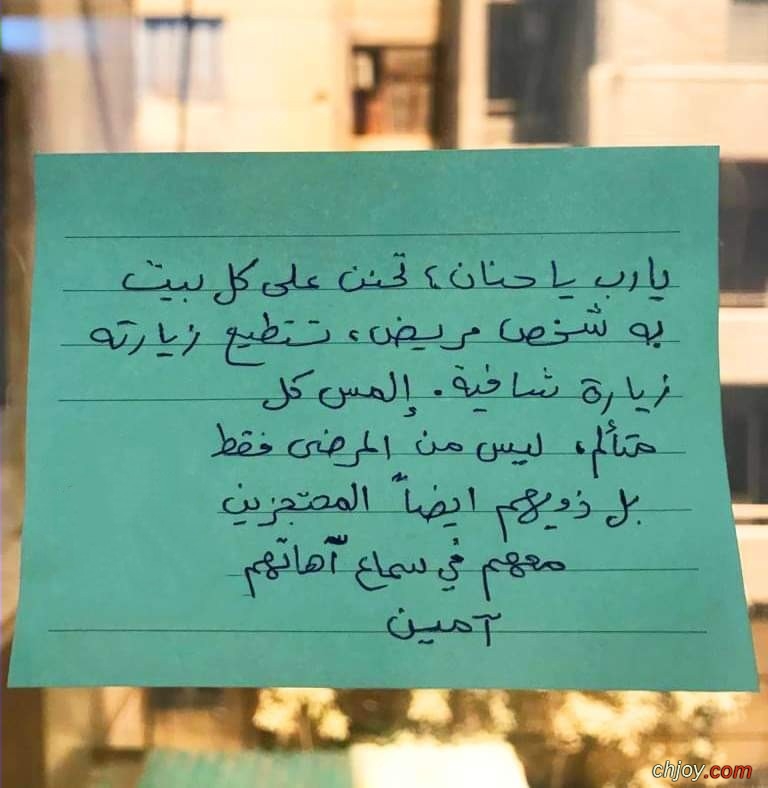 يارب يا حنان، تحنن على كل بيت
به شخص مريض، تستطيع زيارته
زيارة شافية. إلمس كل
متألم، ليس من المرضى فقط
بل ذويهم ايضاً المحتجزين
معهم في سماع آهاتهم
آمين
chjoy.com